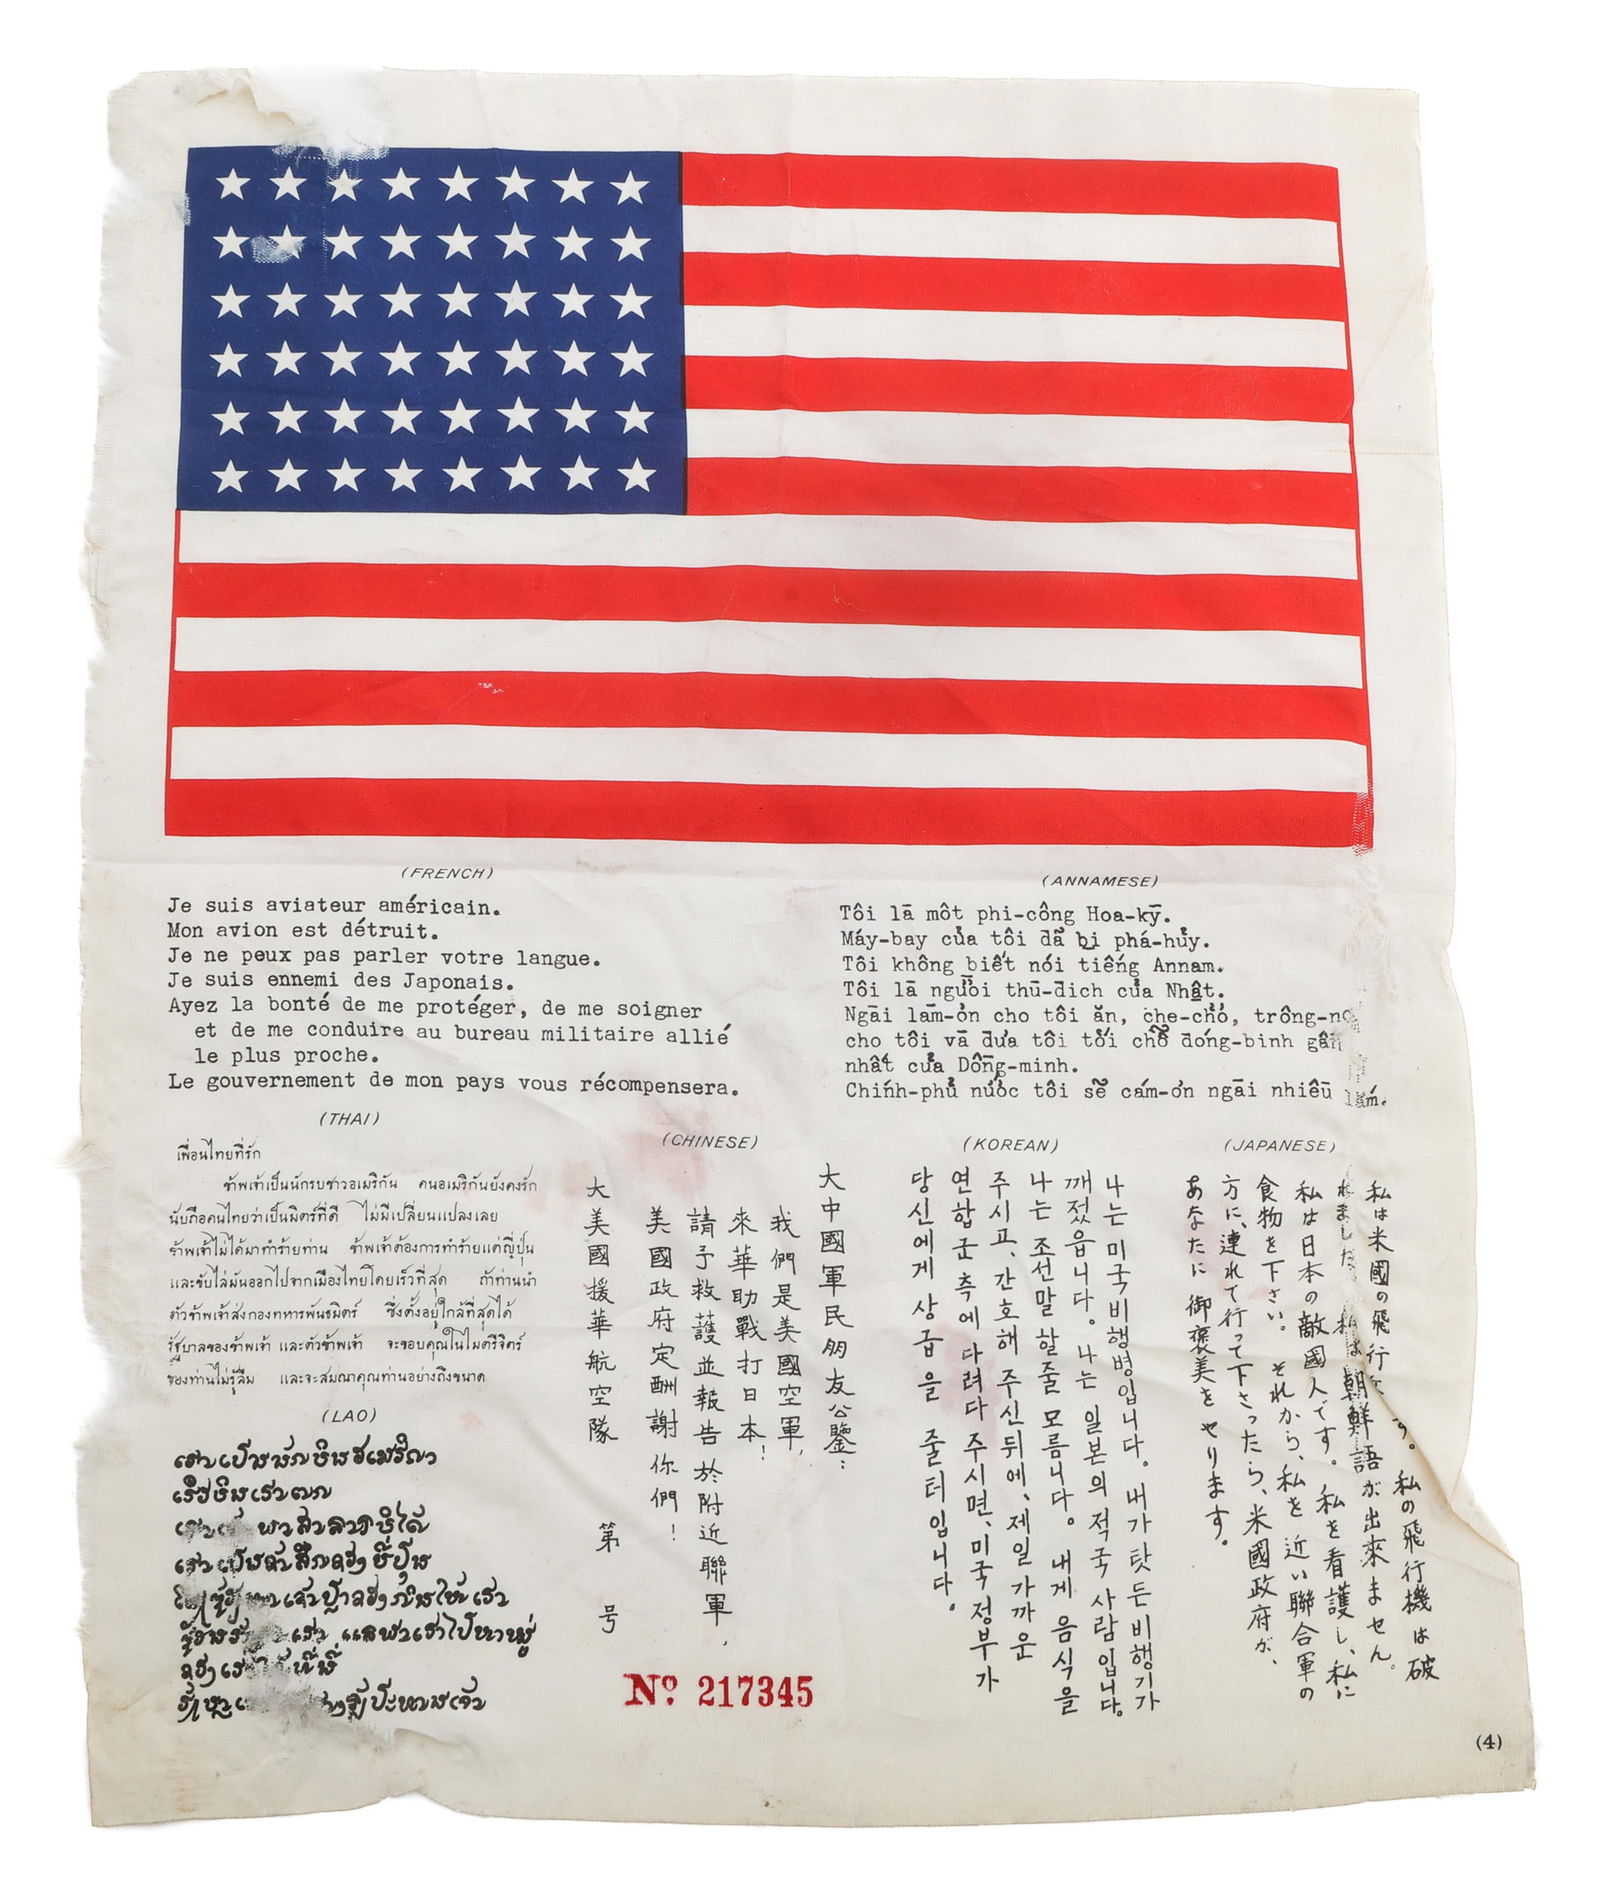 (FRENCH)
Je suis aviateur américain.
Mon avion est détruit.
Je ne peux pas parler votre langue.
Je suis ennemi des Japonais.
Ayez la bonté de me protéger, de me soigner
et de me conduire au bureau militaire allié
le plus proche.
Le gouvernement de mon pays vous récompensera.
(ANNAMESE)
Tôi lā môt phi-công Hoa-kȳ.
Máy-bay của tôi đã bị phá-hủy.
Tôi không biết nói tiếng Annam.
Tôi lā người thū-đich của Nhật.
Ngāi lām-ơn cho tôi ăn, che-chở, trông-
cho tôi vā đưa tôi tới chỗ đóng-binh gần
nhất của Đồng-minh.
Chính-phủ nước tôi sẽ cám-ơn ngāi nhiều
(THAI)
เพื่อนไทยที่รัก
ข้าพเจ้าเป็นนักรบชาวอเมริกัน คนอเมริกันยังคงรัก
นับถือคนไทยว่าเป็นมิตร์ที่ดี ไม่มีเปลี่ยนแปลงเลย
ข้าพเจ้าไม่ได้มาทำร้ายท่าน ข้าพเจ้าต้องการทำร้ายแต่ญี่ปุ่น
และขับไล่มันออกไปจากเมืองไทยโดยเร็วที่สุด ถ้าท่านนำ
ตัวข้าพเจ้าส่งกองทหารพันธมิตร์ ซึ่งตั้งอยู่ใกล้ที่สุดได้
รัฐบาลของข้าพเจ้า และตัวข้าพเจ้า จะขอบคุณในไมตรีจิตร์
ของท่านไม่รู้ลืม และจะสมณาคุณท่านอย่างถึงขนาด
(LAO)
(CHINESE)
大中國軍民朋友公鑒:
我們是美國空軍,
來華助戰打日本!
請予救護並報告於附近聯軍,
美國政府定酬謝你們!
大美國援華航空隊 第 号
Nº 217345
(KOREAN)
나는 미국 비행병입니다. 내가 탓든 비행기가
깨젔읍니다. 나는 일본의 적국 사람입니다.
나는 조선말 할줄 모릅니다. 내게 음식을
주시고, 간호해 주신뒤에, 제일 가까운
연합군측에 다려다 주시면, 미국 정부가
당신에게 상급을 줄터입니다.
(JAPANESE)
私は米國の飛行 す。私の飛行機は破
れました 私は朝鮮語が出來ません。
私は日本の敵國人です。私を看護し、私に
食物を下さい。それから、私を近い聯合軍の
方に、連れて行って下さったら、米國政府が、
あなたに御褒美をやります。
(4)